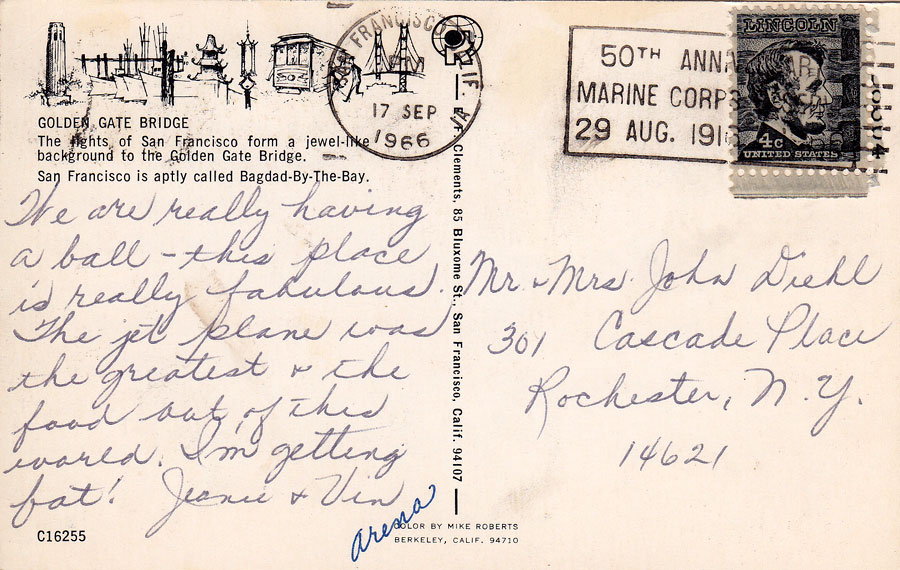 SAN FRANCISCO, CALIF
17 SEP
1966
50TH ANN
MARINE CORPS
29 AUG. 191
LINCOLN
4c
UNITED STATES
GOLDEN GATE BRIDGE
The lights of San Francisco form a jewel-like
background to the Golden Gate Bridge.
San Francisco is aptly called Bagdad-By-The-Bay.
We are really having
a ball - this place
is really fabulous.
The jet plane was
the greatest & the
food out of this
world. I'm getting
fat! Jeanie & Vin
Arena
C16255
Clements, 85 Bluxome St., San Francisco, Calif. 94107
COLOR BY MIKE ROBERTS
BERKELEY, CALIF. 94710
Mr. & Mrs. John Diehl
301 Cascade Place
Rochester, N.Y.
14621